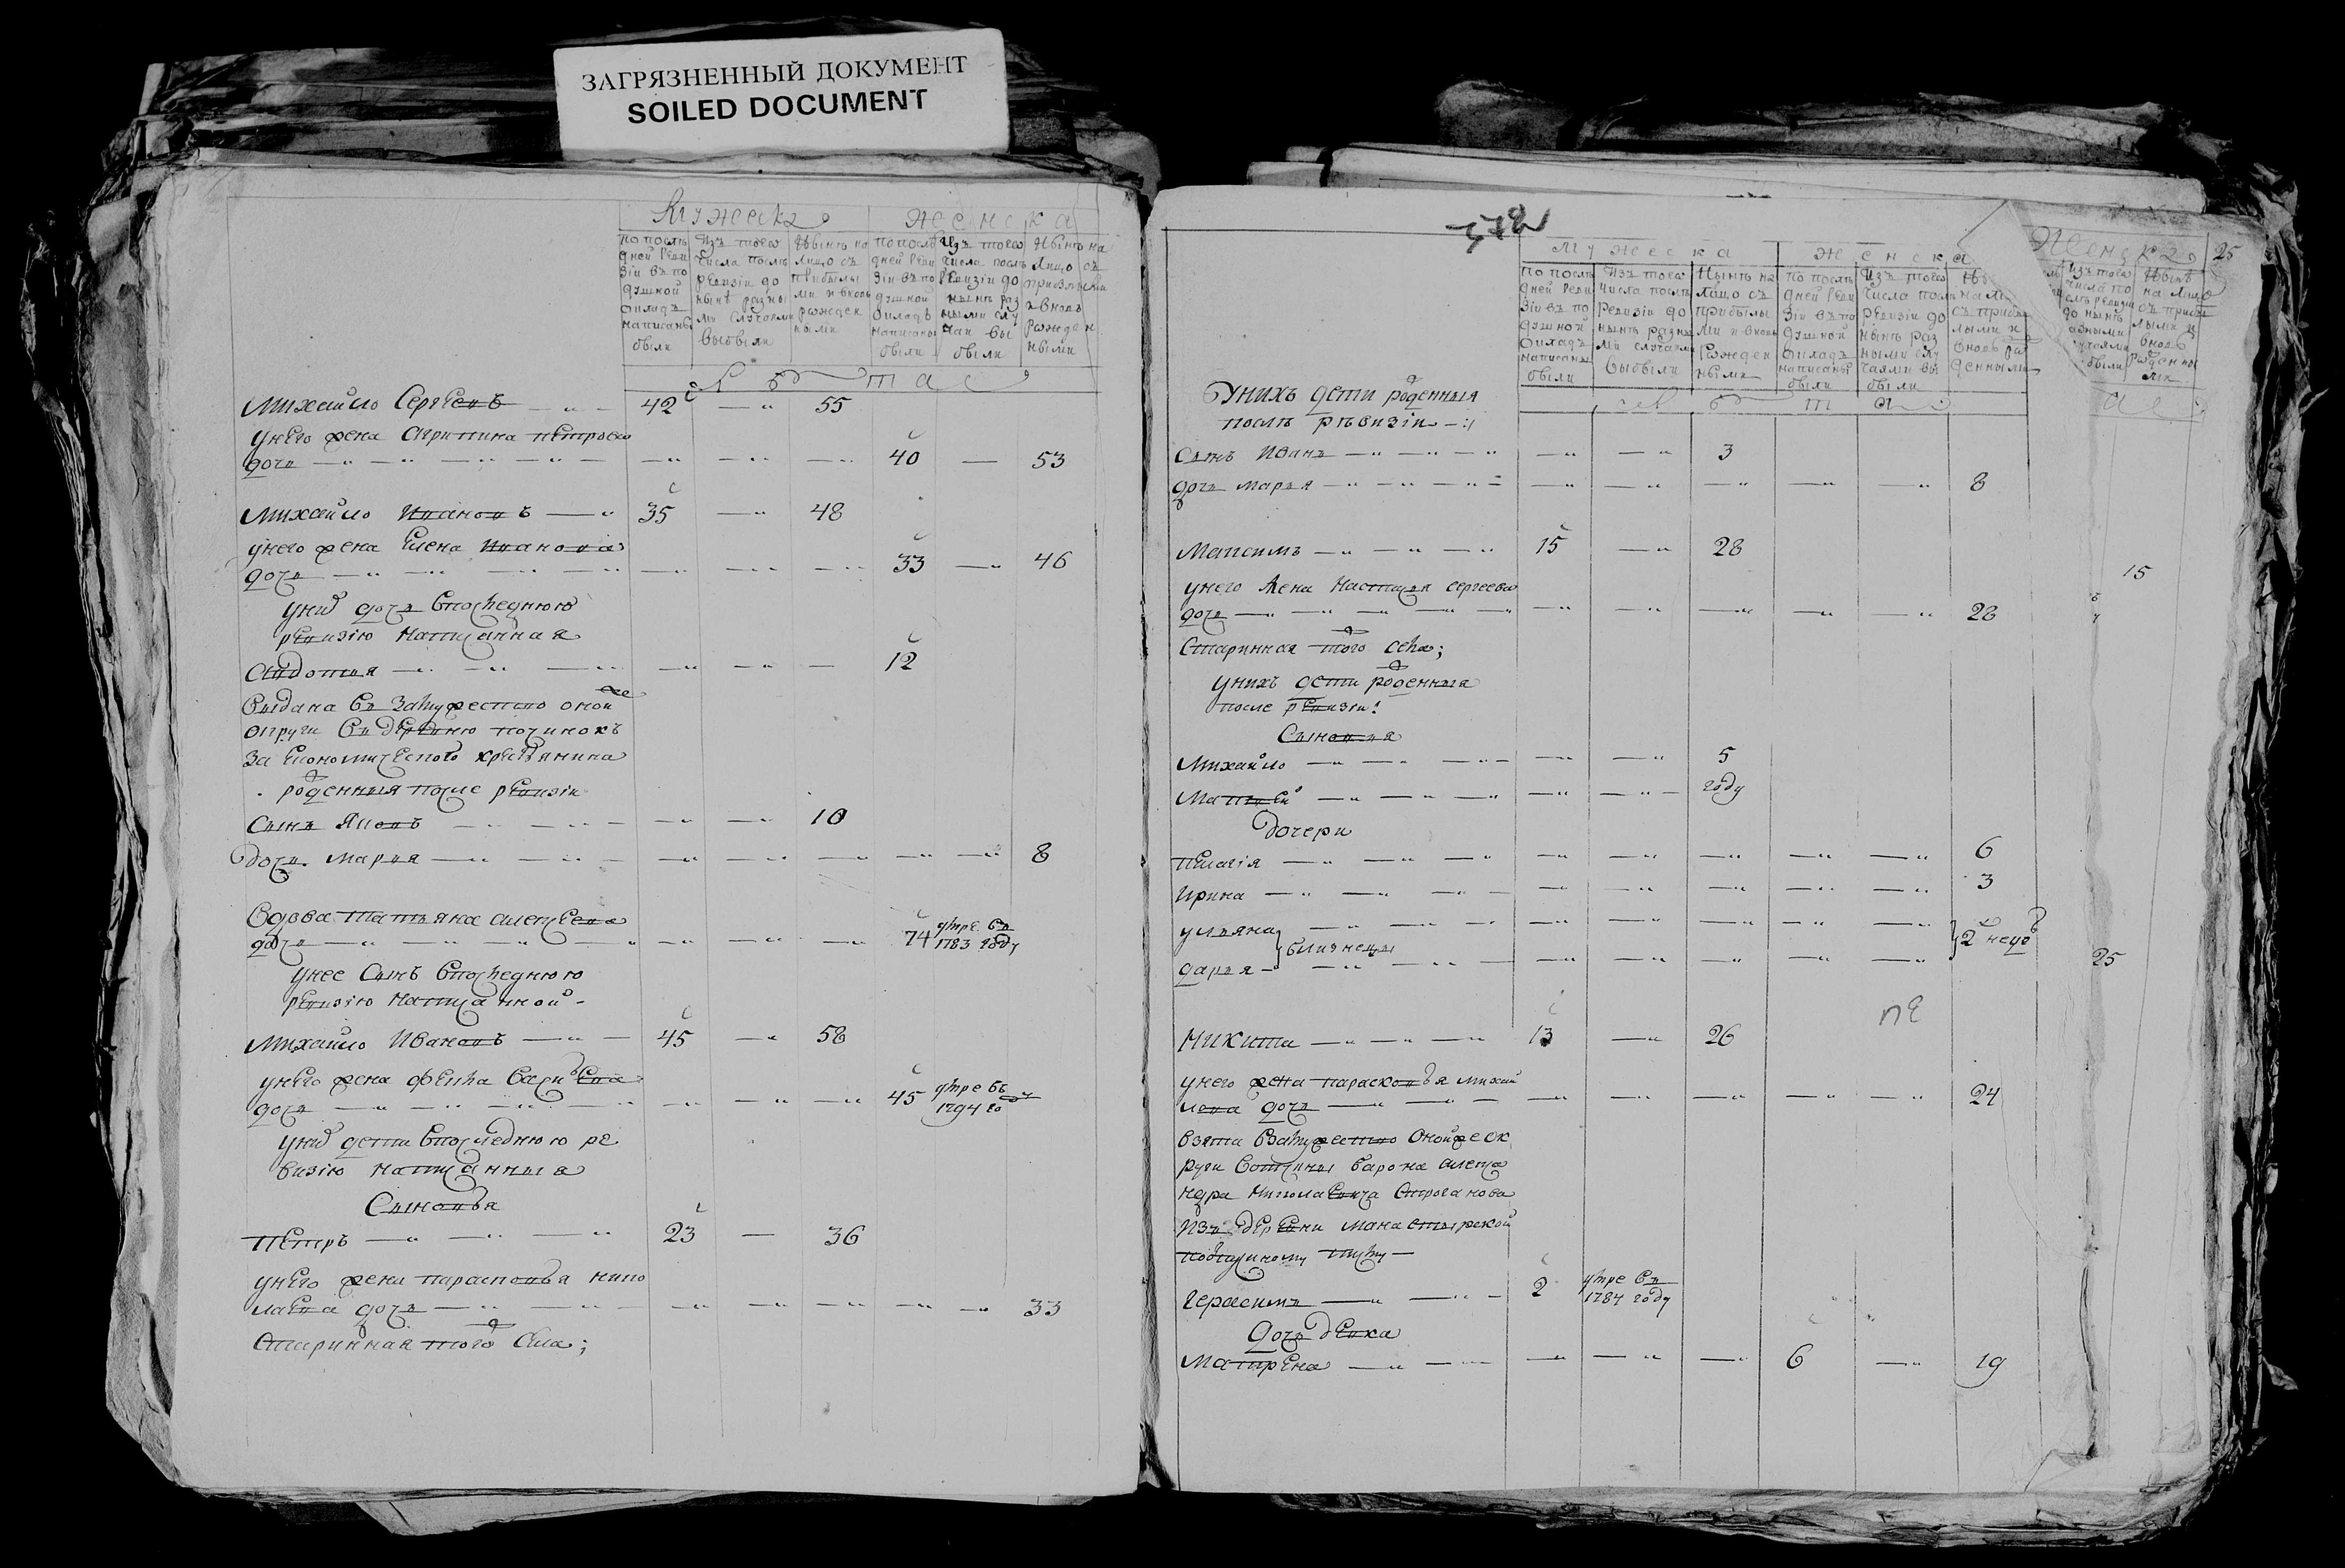 ЗАГРЯЗНЕННЫЙ ДОКУМЕНТ
SOILED DOCUMENT
Мужеска Женска
По послѣдней Ревизіи въ подушной окладъ написаны были
Изъ того числа послѣ ревизіи до нынѣ разными случаями выбыли
Нынѣ на лицо съ прибылыми и вновь рожденными
По послѣдней Ревизіи въ подушной окладъ написаны были
Изъ того числа послѣ Ревизіи до нынѣ разными случаи выбыли
Нынѣ на лицо съ прибылыми и вновь рожденными
Лѣта
Михайло Сергѣевъ 42 55
у него жена Агрипина петрова
дочь 40 53
Михайло Ивановъ 35 48
у него жена Елена Иванова
дочь 33 46
у них дочь впоследнюю
ревизію написанная
Авдотья 12
выдана в замужество оной же
округи в деревню починокъ
за економического крестьянина
рожденныя после ревизіи
Сынъ Яковъ 10
дочь Марья 8
Вдова татьяна алексеева
дочь 74 умре въ 1783 году
у нее сынъ впоследнюю
ревизію написанной
Михайло Ивановъ 45 58
у него жена фекла
дочь 45 умре въ 1794 году
у них дети впоследнюю ре
визію написанныя
Сыновья
Петръ 23 36
у него жена парасковья нико
лаева дочь 33
Старинная того села;
378
Мужеска Женска
По послѣдней Ревизіи въ подушной окладъ написаны были
Изъ того числа послѣ Ревизіи до нынѣ разными случаями выбыли
Нынѣ на лицо съ прибылыми и вновь рожденными
По послѣдней Ревизіи въ подушной окладъ написаны были
Изъ того числа послѣ Ревизіи до нынѣ разными случаями выбыли
съ прибылыми и вновь рожденными
Лѣта
у нихъ дети рожденныя
послѣ ревизіи
Сынъ Иванъ 3
дочь марья 8
Максимъ 15 28
у него жена Настасья сергеева
дочь 28
Старинная того села;
у нихъ дети рожденныя
после ревизіи:
Сыновья
Михайло 5
Матвей году
дочери
пелагія 6
Ирина 3
ульяна
близнецы 2 неде
дарья
Никита 13 26
у него жена парасковья михай
лова дочь 24
взята взамужество оной же ок
руги вотчины барона алекса
ндра Николаевича Строганова
изъ деревни манастырской
Герасимъ 2 умре въ 1784 году
дочь девка
Матрена 6 19
Женска 25
15
25